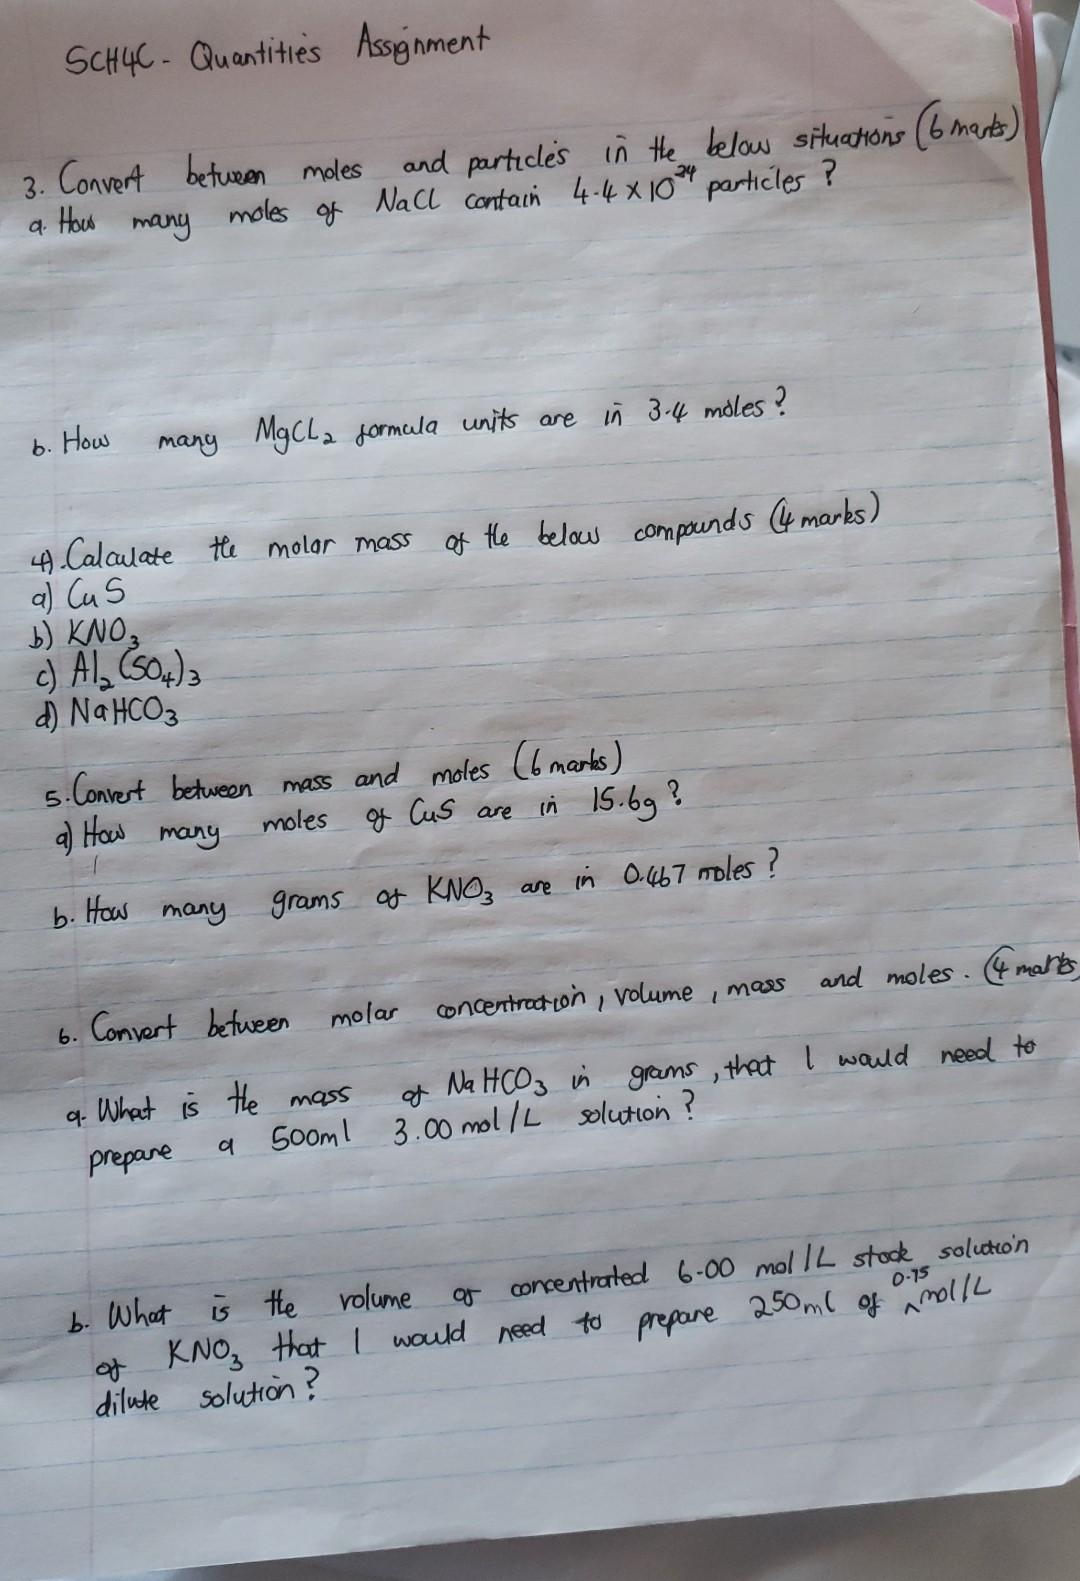 SCH4C - Quantities Assignment
3. Convert between moles and particles in the below situations (6 marks)
a. How many moles of NaCl contain 4.4 x 10²⁴ particles ?
b. How many MgCl₂ formula units are in 3.4 moles ?
4) Calculate the molar mass of the below compounds (4 marks)
a) CuS
b) KNO₃
c) Al₂(SO₄)₃
d) NaHCO₃
5. Convert between mass and moles (6 marks)
a) How many moles of CuS are in 15.6g ?
b. How many grams of KNO₃ are in 0.467 moles ?
6. Convert between molar concentration, volume, mass and moles. (4 marks)
a. What is the mass of NaHCO₃ in grams, that I would need to
prepare a 500ml 3.00 mol/L solution ?
b. What is the volume of concentrated 6.00 mol/L stock solution
of KNO₃ that I would need to prepare 250ml of 0.75 mol/L
dilute solution ?